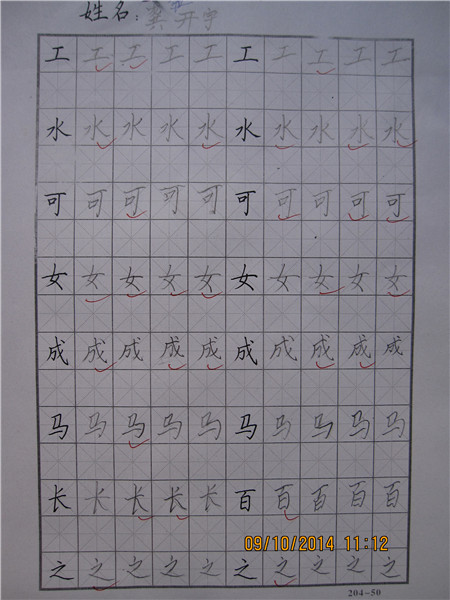 姓名:龚开宇
工工工工工工工工工工
水水水水水水水水水水
可可可可可可可可可可
女女女女女女女女女女
成成成成成成成成成成
马马马马马马马马马马
长长长长长百百百百百
09/10/2014 11:12
之之之之之之之之之之
204-50